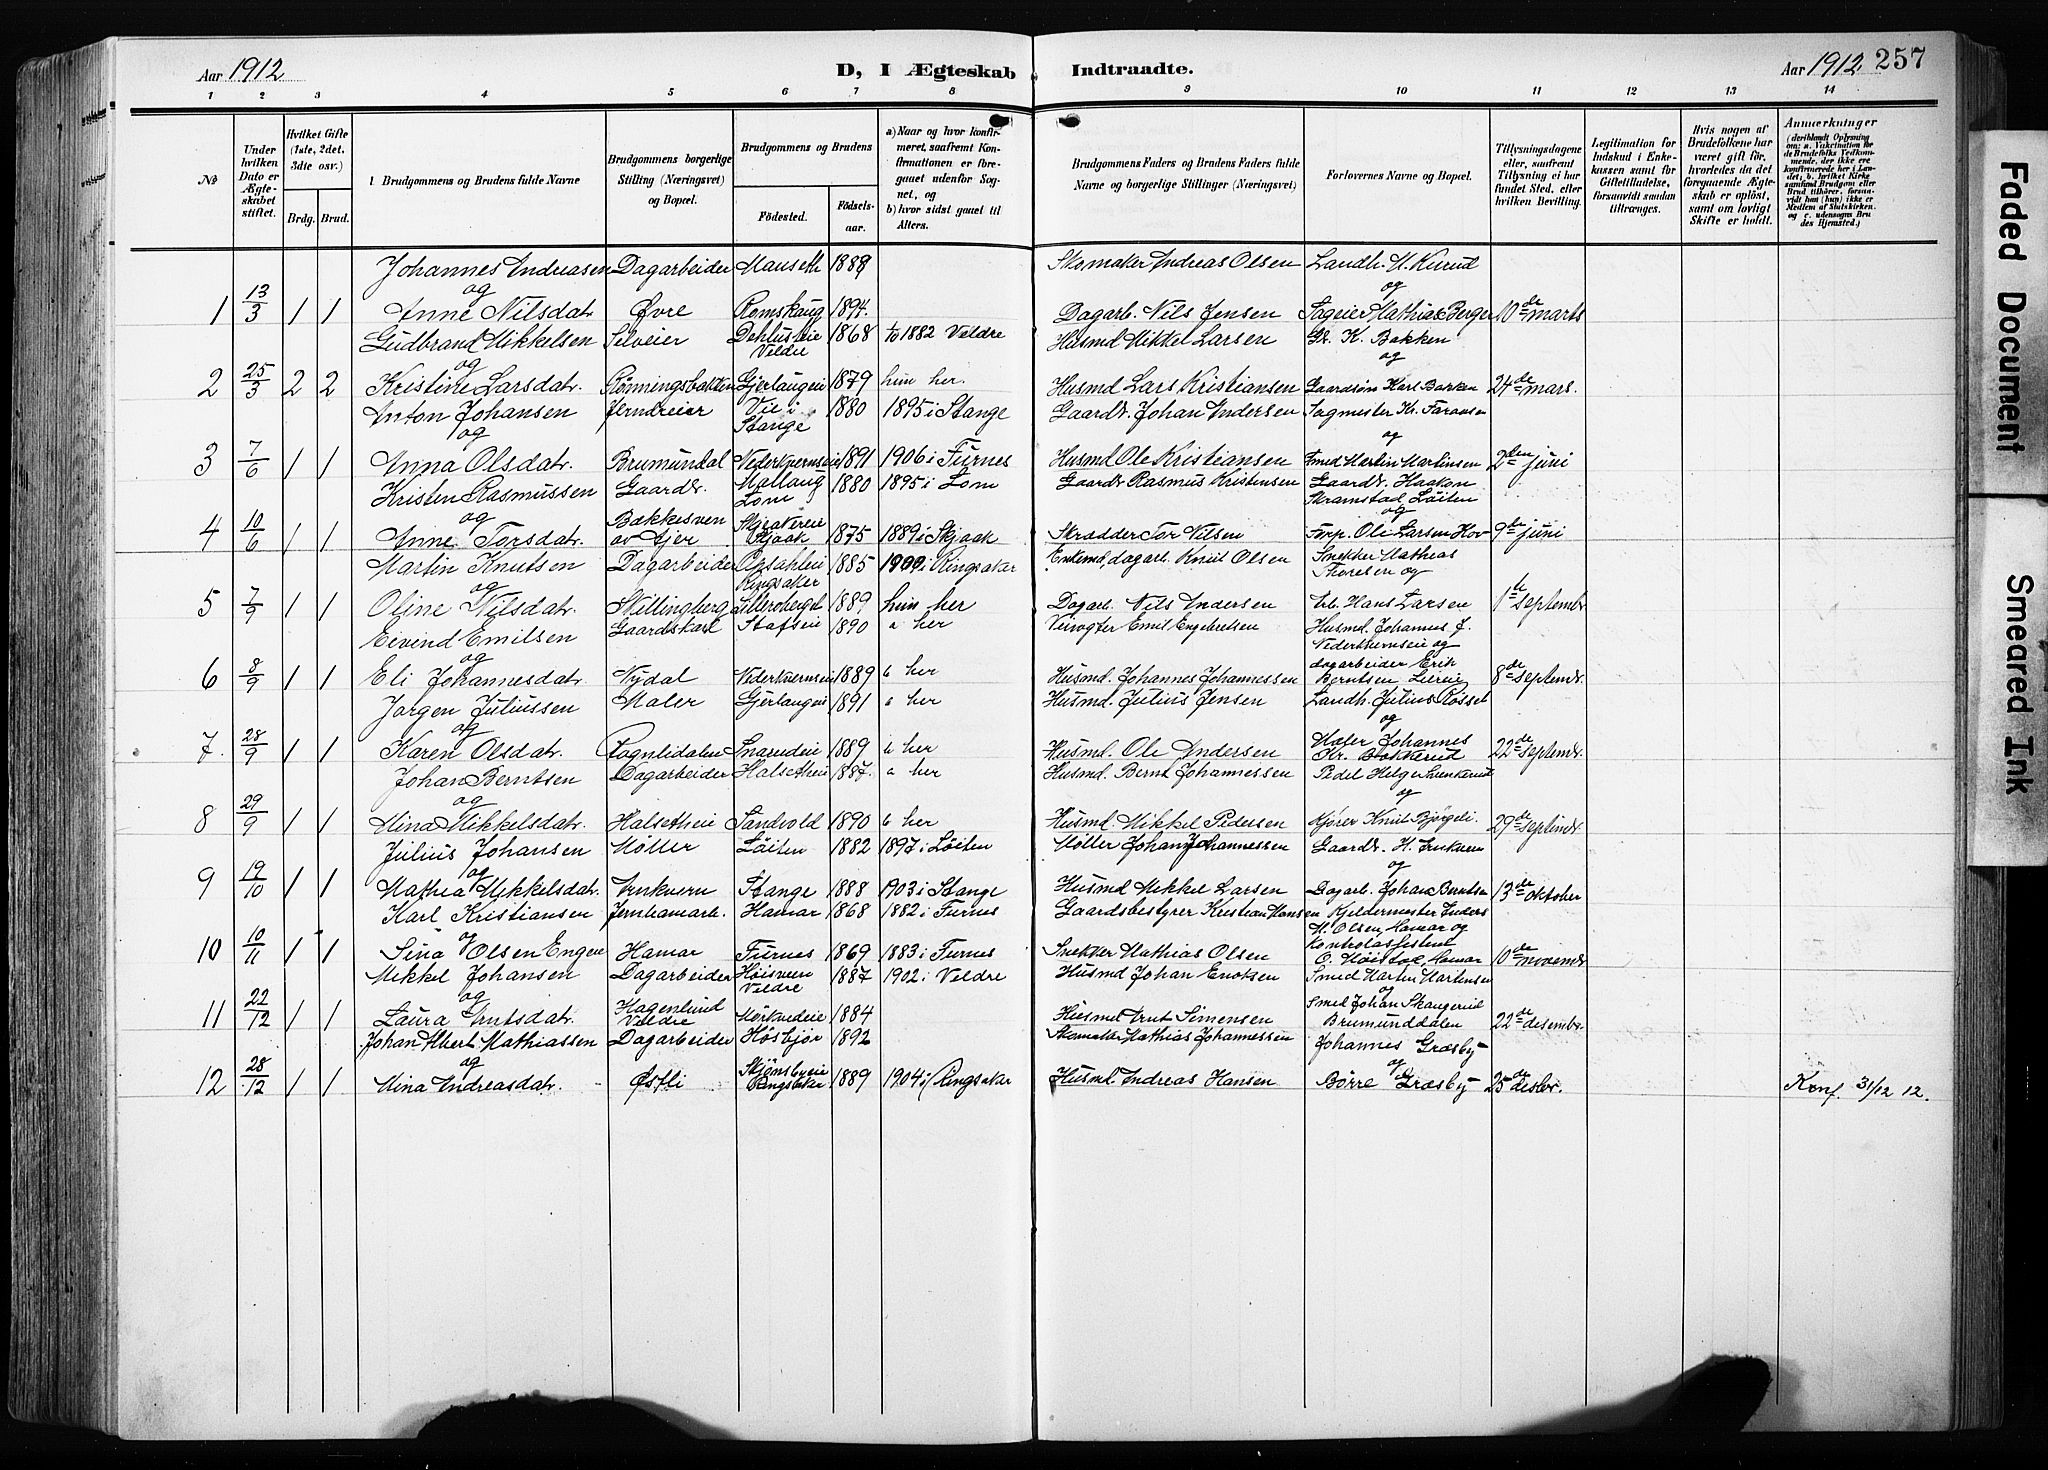 Aar 1912
D, I Ægteskab Indtraadte.
Aar 1912. 257
1 2 3 4 5 6 7 8 9 10 11 12 13 14
№
Under hvilken Dato er Ægteskabet stiftet.
Hvilket Gifte (1ste, 2det, 3die osv.)
Brdg. Brud.
Brudgommens og Brudens fulde Navne
Brudgommens borgerlige Stilling (Næringsvei) og Bopæl.
Brudgommens og Brudens
Fødested. Fødselsaar.
a) Naar og hvor konfirmeret, saafremt Konfirmationen er foregaaet udenfor Sognet, og
b) hvor sidst gaaet til Alters.
Brudgommens Faders og Brudens Faders fulde Navne og borgerlige Stillinger (Næringsvei)
Forlovernes Navne og Bopæl.
Tillysningsdagene eller, saafremt Tillysning ei har fundet Sted, efter hvilken Bevilling.
Legitimation for Indskud i Enkekassen samt for Giftetilladelse, forsaavidt saadan tiltrænges.
Hvis nogen af Brudefolkene har været gift før, hvorledes da det foregaaende Ægteskab er opløst, samt om lovligt Skifte er holdt.
Anmerkninger
(deriblandt Oplysning om: a. Vakcination for de Brudefolks Vedkommende, der ikke ere konfirmerede her i Landet; b. hvilket Kirkesamfund Brudgom eller Brud tilhører, forsaavidt han (hun) ikke er Medlem af Statskirken, og c. udensogns Brudes Hjemsted.)
Johannes Andreasen Dagarbeider Mauseth 1888 Skomaker Andreas Olsen Landh.
og og
1 13/3 1 1 Anne Nilsdatr. Øvre Romskaug 1894. Dagarb. Nils Jensen Sageier Mathias Berger 10de marts
Gudbrand Mikkelsen Selveier 1868 1882 Veldre Husmd Mikkel Larsen K. Bakken
og Veldre og
2 25/3 2 2 Kristine Larsdatr. Rønningsbakken Gjerlaugeie 1879 hun her. Husmd Lars Kristiansen Gaardsøn Karl Bakken 24de mars.
Anton Johansen Jerndreier Vie i Stange 1880 1895 i Stange Gaardr. Johan Andersen Sagmester Kr.
og og
3 7/6 1 1 Anna Olsdatr. Brumundal Nederkvernseie 1891 1906 i Furnes Husmd Ole Kristiansen Smed Martin Martinsen 2den juni
Kristen Rasmussen Gaardr. Lom 1880 1895 i Lom Gaardr Rasmus Kristensen Gaardr. Haakon Skramstad, Løiten
og og
4 10/6 1 1 Anne Torsdatr. Bakkesven av Skjaak 1875 1889 i Skjaak Skrædder Tor Nilsen Forp. Ole Larsen Hov 9de juni
Martin Knutsen Dagarbeider Opsahleie Ringsaker 1885 1900 i Ringsaker Enkemd, dagarb. Knut Olsen Snekker Mathias Thoresen og
og
5 7/9 1 1 Oline Nilsdatr. Skillingberg 1889 hun her Dagarb. Nils Andersen Hans Larsen 1ste septembr
Eivind Emilsen Gaardskarl Stafseie 1890 a her Veivogter Emil Engebretsen Husmd. Johannes J. Nederkvernseie og
og
6 8/9 1 1 Eli Johannesdatr. Nydal Nederkvernseie 1889 b her Husmd. Johannes Johannessen dagarbeider Erik Berntsen 8de septembr.
Jørgen Juliussen Maler Gjerlaugeie 1891 a her Husmd. Julius Jensen Landh. Julius Røssel
og og
7. 28/9 1 1 Karen Olsdatr. Rognlidalen Snarudeie 1889 b her Husmd. Ole Andersen Maler Johannes Kr. Bakkerud 22de septembr
Johan Berntsen Dagarbeider Halsetheie 1887. a her Husmd. Bernt Johannessen Pedel Helge
og og
8 29/9 1 1 Mina Mikkelsdatr. Halsetheie Sandvold 1890 b her Husmd. Mikkel Pedersen Kjører Knut Bjørgeli. 29de septembr.
Julius Johansen Møller Løiten 1882 1897 i Løiten Møller Johan Johannessen Gaardr. H. Arnkvern
og og
9 19/10 1 1 Mathea Mikkelsdatr. Arnkvern Stange 1888 1903 i Stange Husmd Mikkel Larsen Dagarb. Johan Berntsen 13de oktober
Karl Kristiansen Jernbanearb. Hamar 1868 1882 i Furnes Gaardsbestyrer Kristian Hansen Kjeldermester Anders M. Olsen, Hamar og
og
10 10/11 1 1 Sina Olsen Engen Hamar Furnes 1869 1883 i Furnes Snekker Mathias Olsen O. Høistad, Hamar 10de novembr
Mikkel Johansen Dagarbeider Høisveen Veldre 1887 1902 i Veldre Husmd Johan Enoksen Smed Martin Martinsen
og og
11 22/12 1 1 Laura Arntsdatr. Hagenlund Veldre Mørkudeie 1884 Husmd Arnt Simensen Smed Johan Skaugerud Brumunddalen 22de desembr
Johan Albert Mathiassen Dagarbeider Høsbjør 1892 Skomaker Mathias Johannessen Johannes Græsby
og og
12 28/12 1 1 Mina Andreasdatr. Østli Skjønsbyeie Ringsaker 1889 1904 i Ringsaker Husmd Andreas Hansen Børre Græsby 25de desbr. Konf. 31/12 12.
Faded Document
Smeared Ink